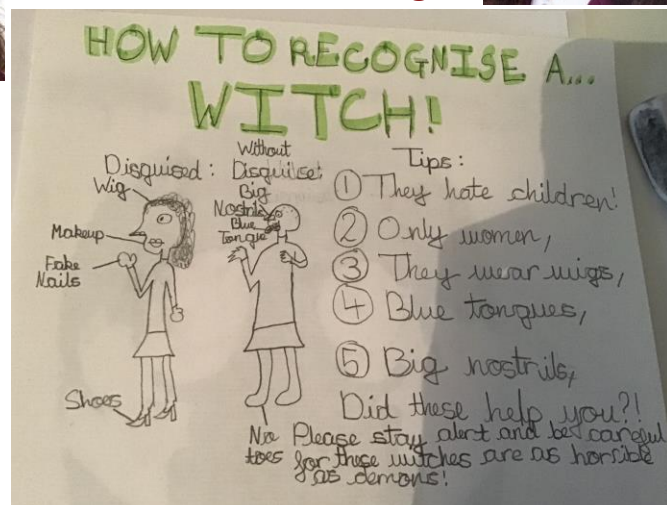 HOW TO RECOGNISE A...
WITCH!
Disguised:
Wig
Makeup
Fake
Nails
Shoes
Without
Disguise:
Big
Nostrils
Blue
Tongue
No
toes
Tips:
① They hate children!
② Only women,
③ They wear wigs,
④ Blue tongues,
⑤ Big nostrils,
Did these help you?!
Please stay alert and be careful
for these witches are as horrible
as demons!